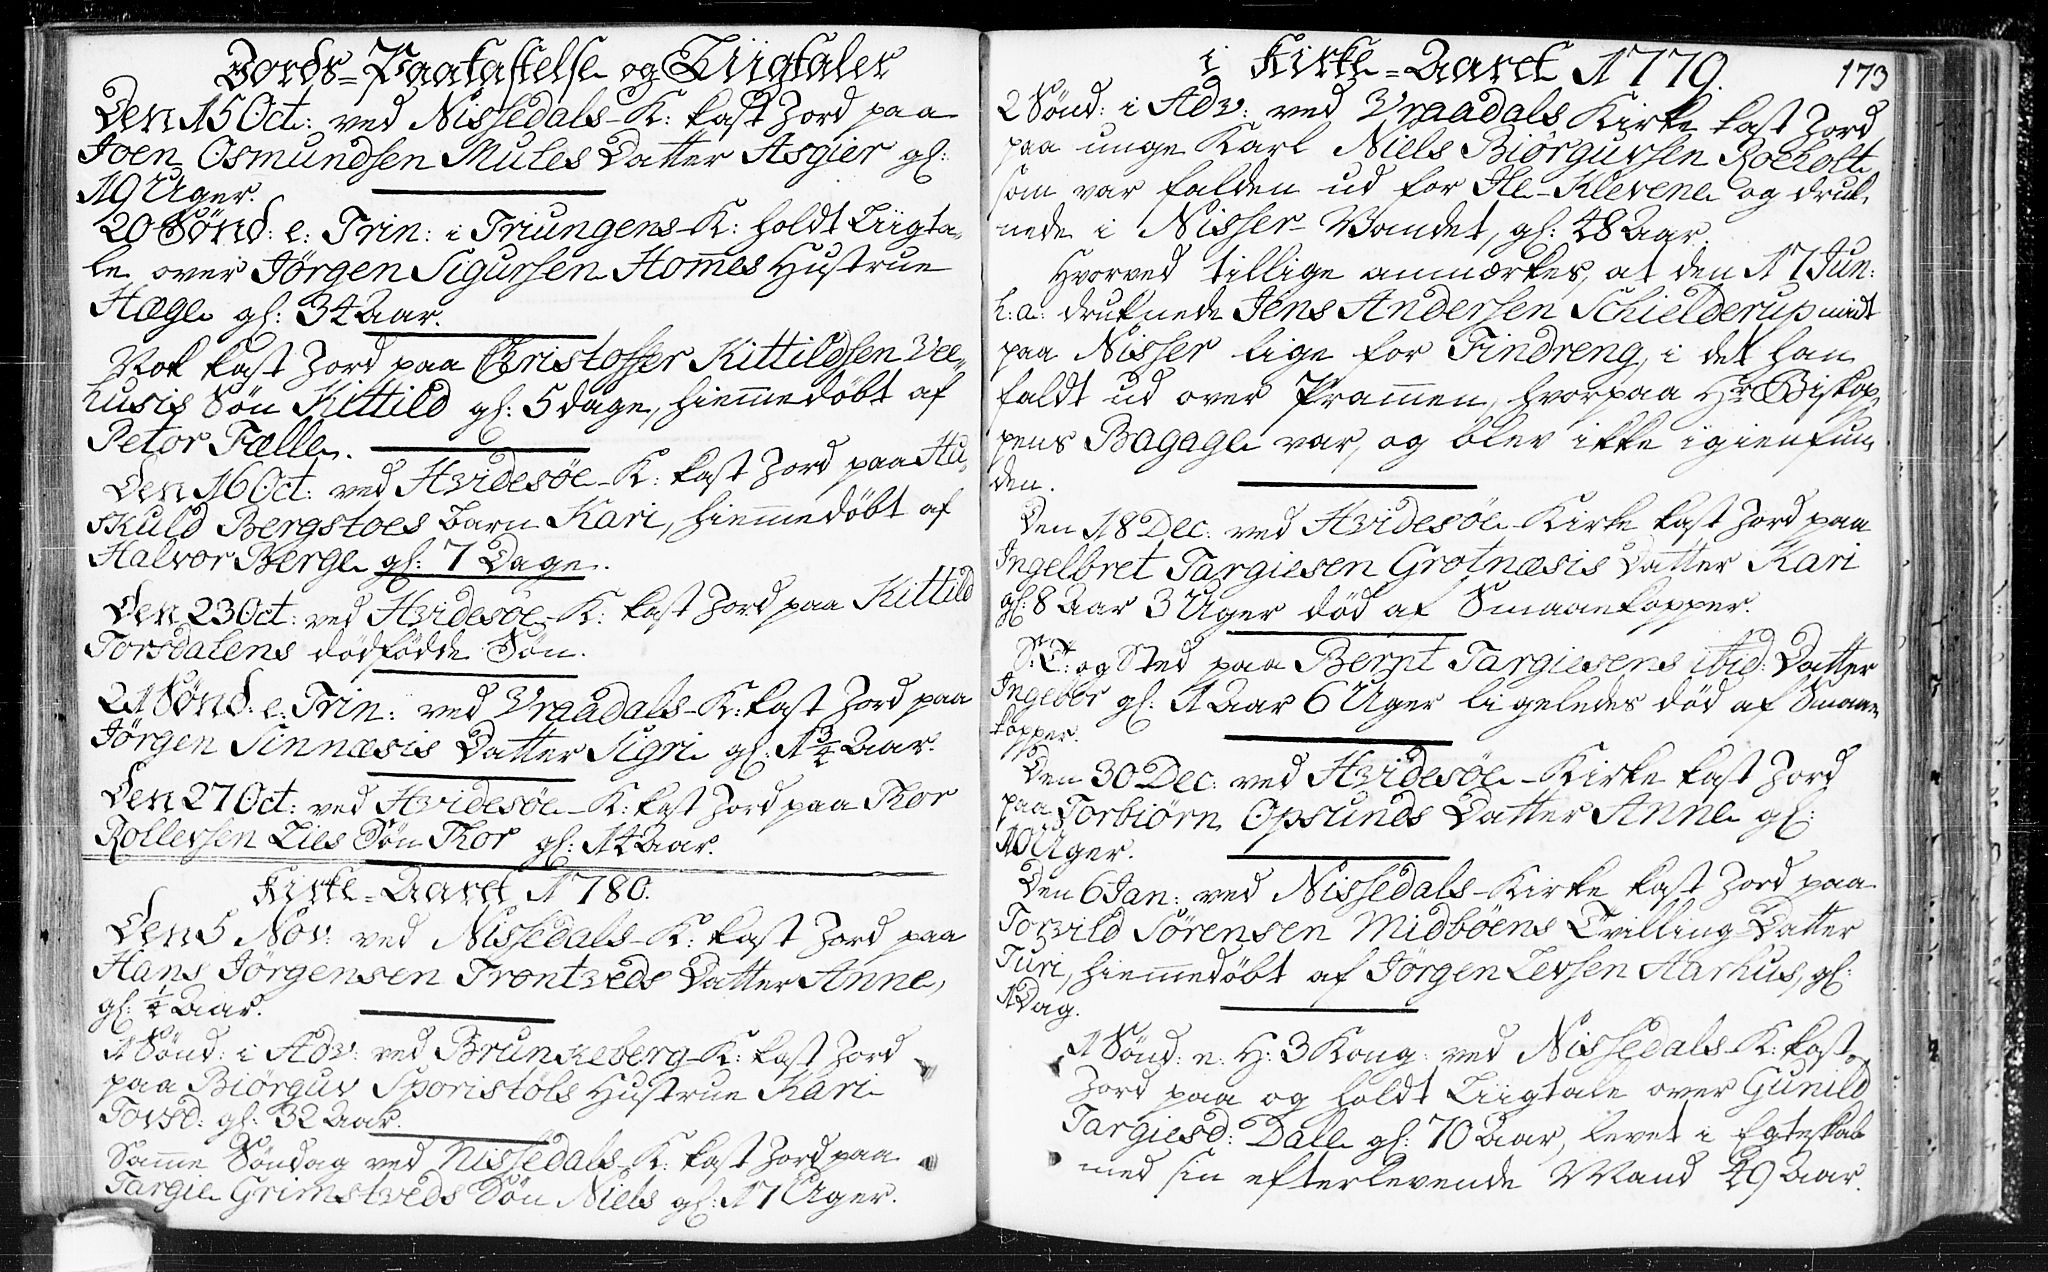 Jords-Paakastelse og Liigtaler
Den 15 Oct: ved Nissedals-K: kast Jord paa
Joen Osmundsen Mules Datter Asgier gl:
19 Uger.
20 Sønd: e: Trin: i Triungens-K: holdt Liigta-
le over Jørgen Sigursen Homes Hustrue
Hæge gl: 34 Aar.
Nok kast Jord paa Christoffer Kittildsen Vee-
husis Søn Kittild gl: 5 dage, hiemedøbt af
Petor Fælle.
Den 16 Oct: ved Hvidesøe-K: kast Jord paa Hu-
skuld Bergstoes barn Kari, hiemedøbt af
Halvor Berge gl: 7 Dage.
Den 23 Oct: ved Hvidesøe-K: kast Jord paa Kittild
Torsdalens dødfødde Søn.
21 Sønd: e: Trin: ved Vraadals-K: kast Jord paa
Jørgen Sinnæsis Datter Sigri gl: 1 3/4 Aar.
Den 27 Oct: ved Hvidesøe-K: kast Jord paa Thor
Rollevsen Lies Søn Thor gl: 14 Aar.
Kirke-Aaret 1780.
Den 5 Nov: ved Nissedals-K: kast Jord paa
Hans Jørgensen Trontveds Datter Anne,
gl: 1/4 Aar.
1 Sønd: i Adv: ved Brunkeberg-K: kast Jord
paa Biørguv Sporistøls Hustrue Kari
Tovsd: gl: 32 Aar.
Samme Søndag ved Nissedals-K: kast Jord paa
Targie Grimstveds Søn Niels gl: 17 Uger.
i Kirke-Aaret 1779.
173
2 Sønd: i Adv: ved Vraadals Kirke kast Jord
paa unge Karl Niels Biørguvsen Roeholt
som var falden ud for He-Klevene og druk-
nede i Nisser-Vandet, gl: 48 Aar.
Hvorved tillige anmærkes, at den 17 Jun:
h: a: druknede Jens Andersen Schielderup midt
paa Nisser lige for Findreng, i det han
faldt ud over Pramen, hvorpaa Hr Biskop-
pens Bagage var, og blev ikke igienfun-
den.
Den 18 Dec: ved Hvidesøe-Kirke kast Jord paa
Ingelbret Targiesen Grotnæsis Datter Kari
gl: 8 Aar 3 Uger død af Smaaekopper.
S: T: og Sted paa Bernt Targiesens ibid: Datter
Ingebor gl: 1 Aar 6 Uger ligeledes død af Smaae-
kopper.
Den 30 Dec: ved Hvidesøe-Kirke kast Jord
paa Torbiørn Opsunds Datter Anne gl:
10 Uger.
Den 6 Jan: ved Nissedals-Kirke kast Jord paa
Torvild Sørensen Midbøens Tvilling-Datter
Turi, hiemedøbt af Jørgen Levsen Aarhus, gl:
1 Dag.
1 Sønd: e: H: 3 Kong: ved Nissedals-K: kast
Jord paa og holdt Liigtale over Gunild
Targiesd: Dale gl: 70 Aar, levet i Egteskab
med sin efterlevende Mand 49 Aar.